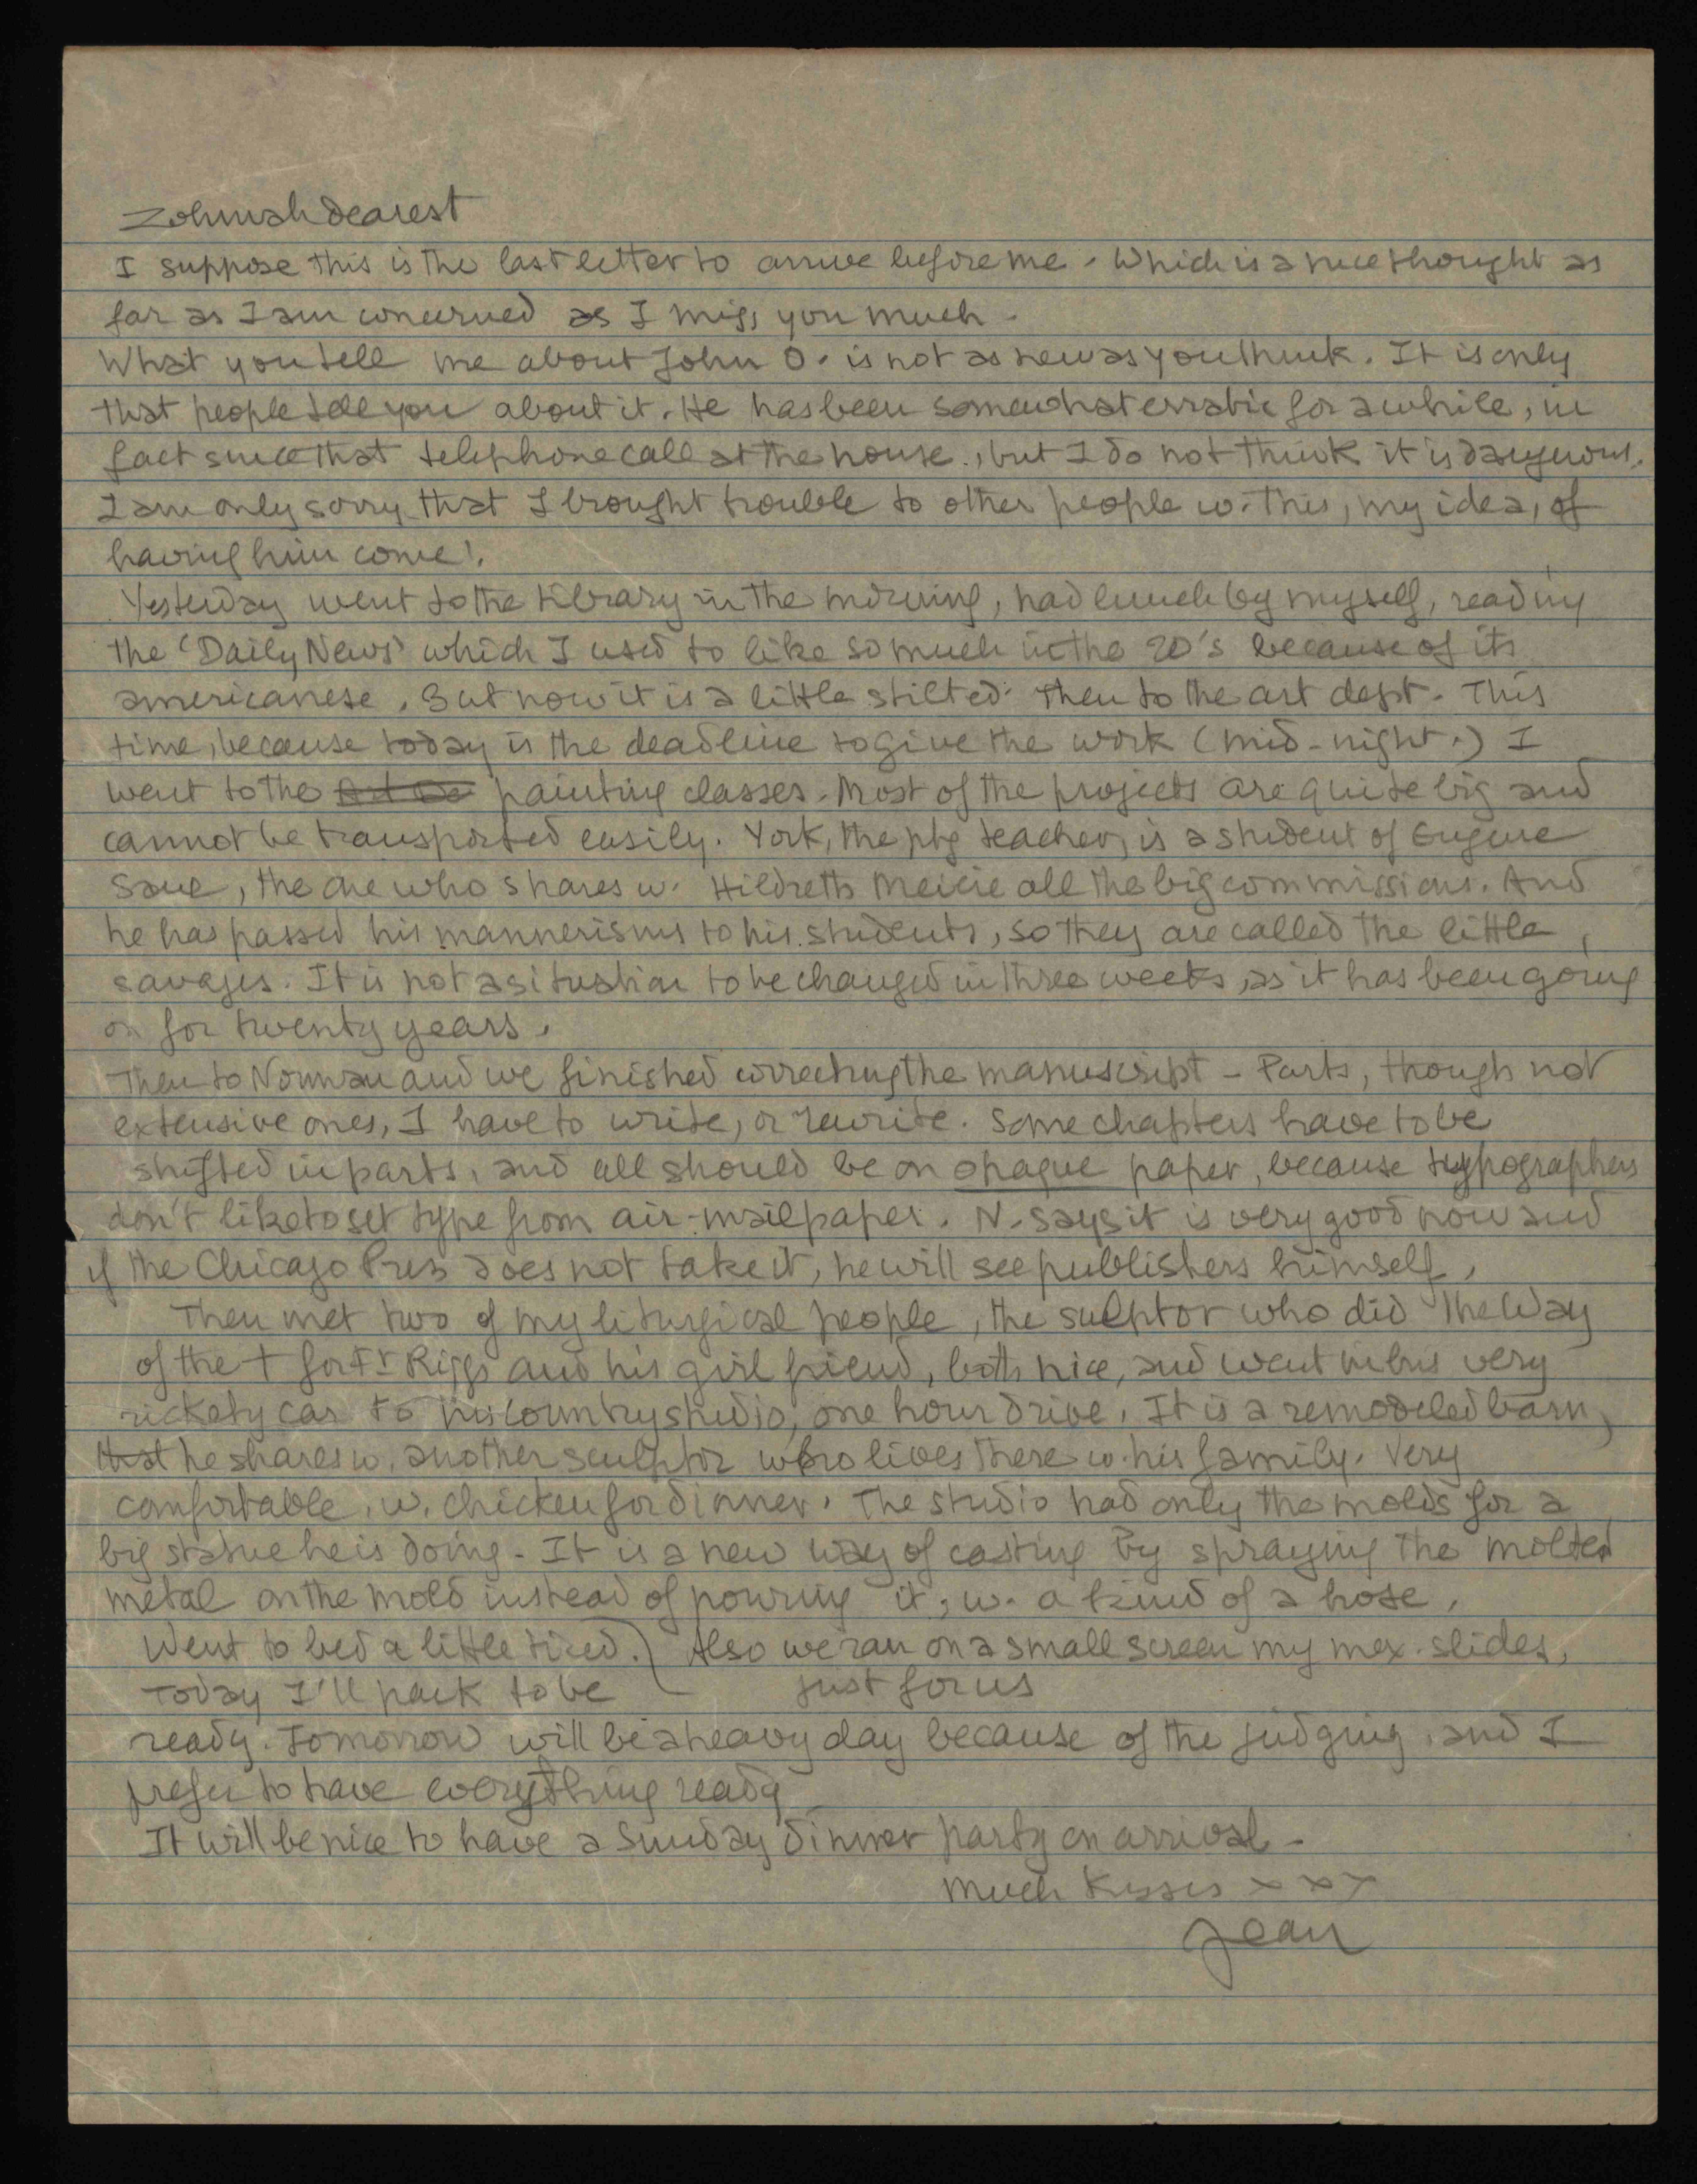 Zohmah dearest
I suppose this is the last letter to arrive before me. Which is a nice thought as
far as I am concerned as I miss you much.
What you tell me about John O. is not as new as you think. It is only
that people tell you about it. He has been somewhat erratic for a while, in
fact since that telephone call at the house., but I do not think it is dangerous.
I am only sorry that I brought trouble to other people w. this, my idea, of
having him come!.
Yesterday went to the Library in the morning, had lunch by myself, reading
the 'Daily News' which I used to like so much in the 20's because of its
americanese. But now it is a little stilted. Then to the art dept. This
time, because today is the deadline to give the work (mid-night.) I
went to the painting classes. Most of the projects are quite big and
cannot be transported easily. York, the ptg teacher, is a student of Eugene
Save, the one who shares w. Hildreth Meicie all the big commissions. And
he has passed his mannerisms to his students, so they are called the little
savages. It is not a situation to be changed in three weeks, as it has been going
on for twenty years.
Then to Norman and we finished correcting the manuscript - Parts, though not
extensive ones, I have to write, or rewrite. Some chapters have to be
shifted in parts, and all should be on opaque paper, because typographers
don't like to set type from air-mail paper. N. says it is very good now and
if the Chicago Press does not take it, he will see publishers himself.
Then met two of my liturgical people, the sculptor who did the Way
of the † for Fr Riggs and his girl friend, both nice, and went in his very
rickety car to his country studio, one hour drive. It is a remodeled barn,
that he shares w. another sculptor who lives there w. his family. Very
comfortable, w. chicken for dinner. The studio had only the molds for a
big statue he is doing - It is a new way of casting by spraying the molted
metal on the mold instead of pouring it, w. a kind of a hose.
Went to bed a little tired.) Also we ran on a small screen my mex. slides,
Today I'll pack to be just for us
ready. Tomorrow will be a heavy day because of the judging, and I
prefer to have everything ready
It will be nice to have a Sunday dinner party on arrival -
Much kisses x x x
Jean